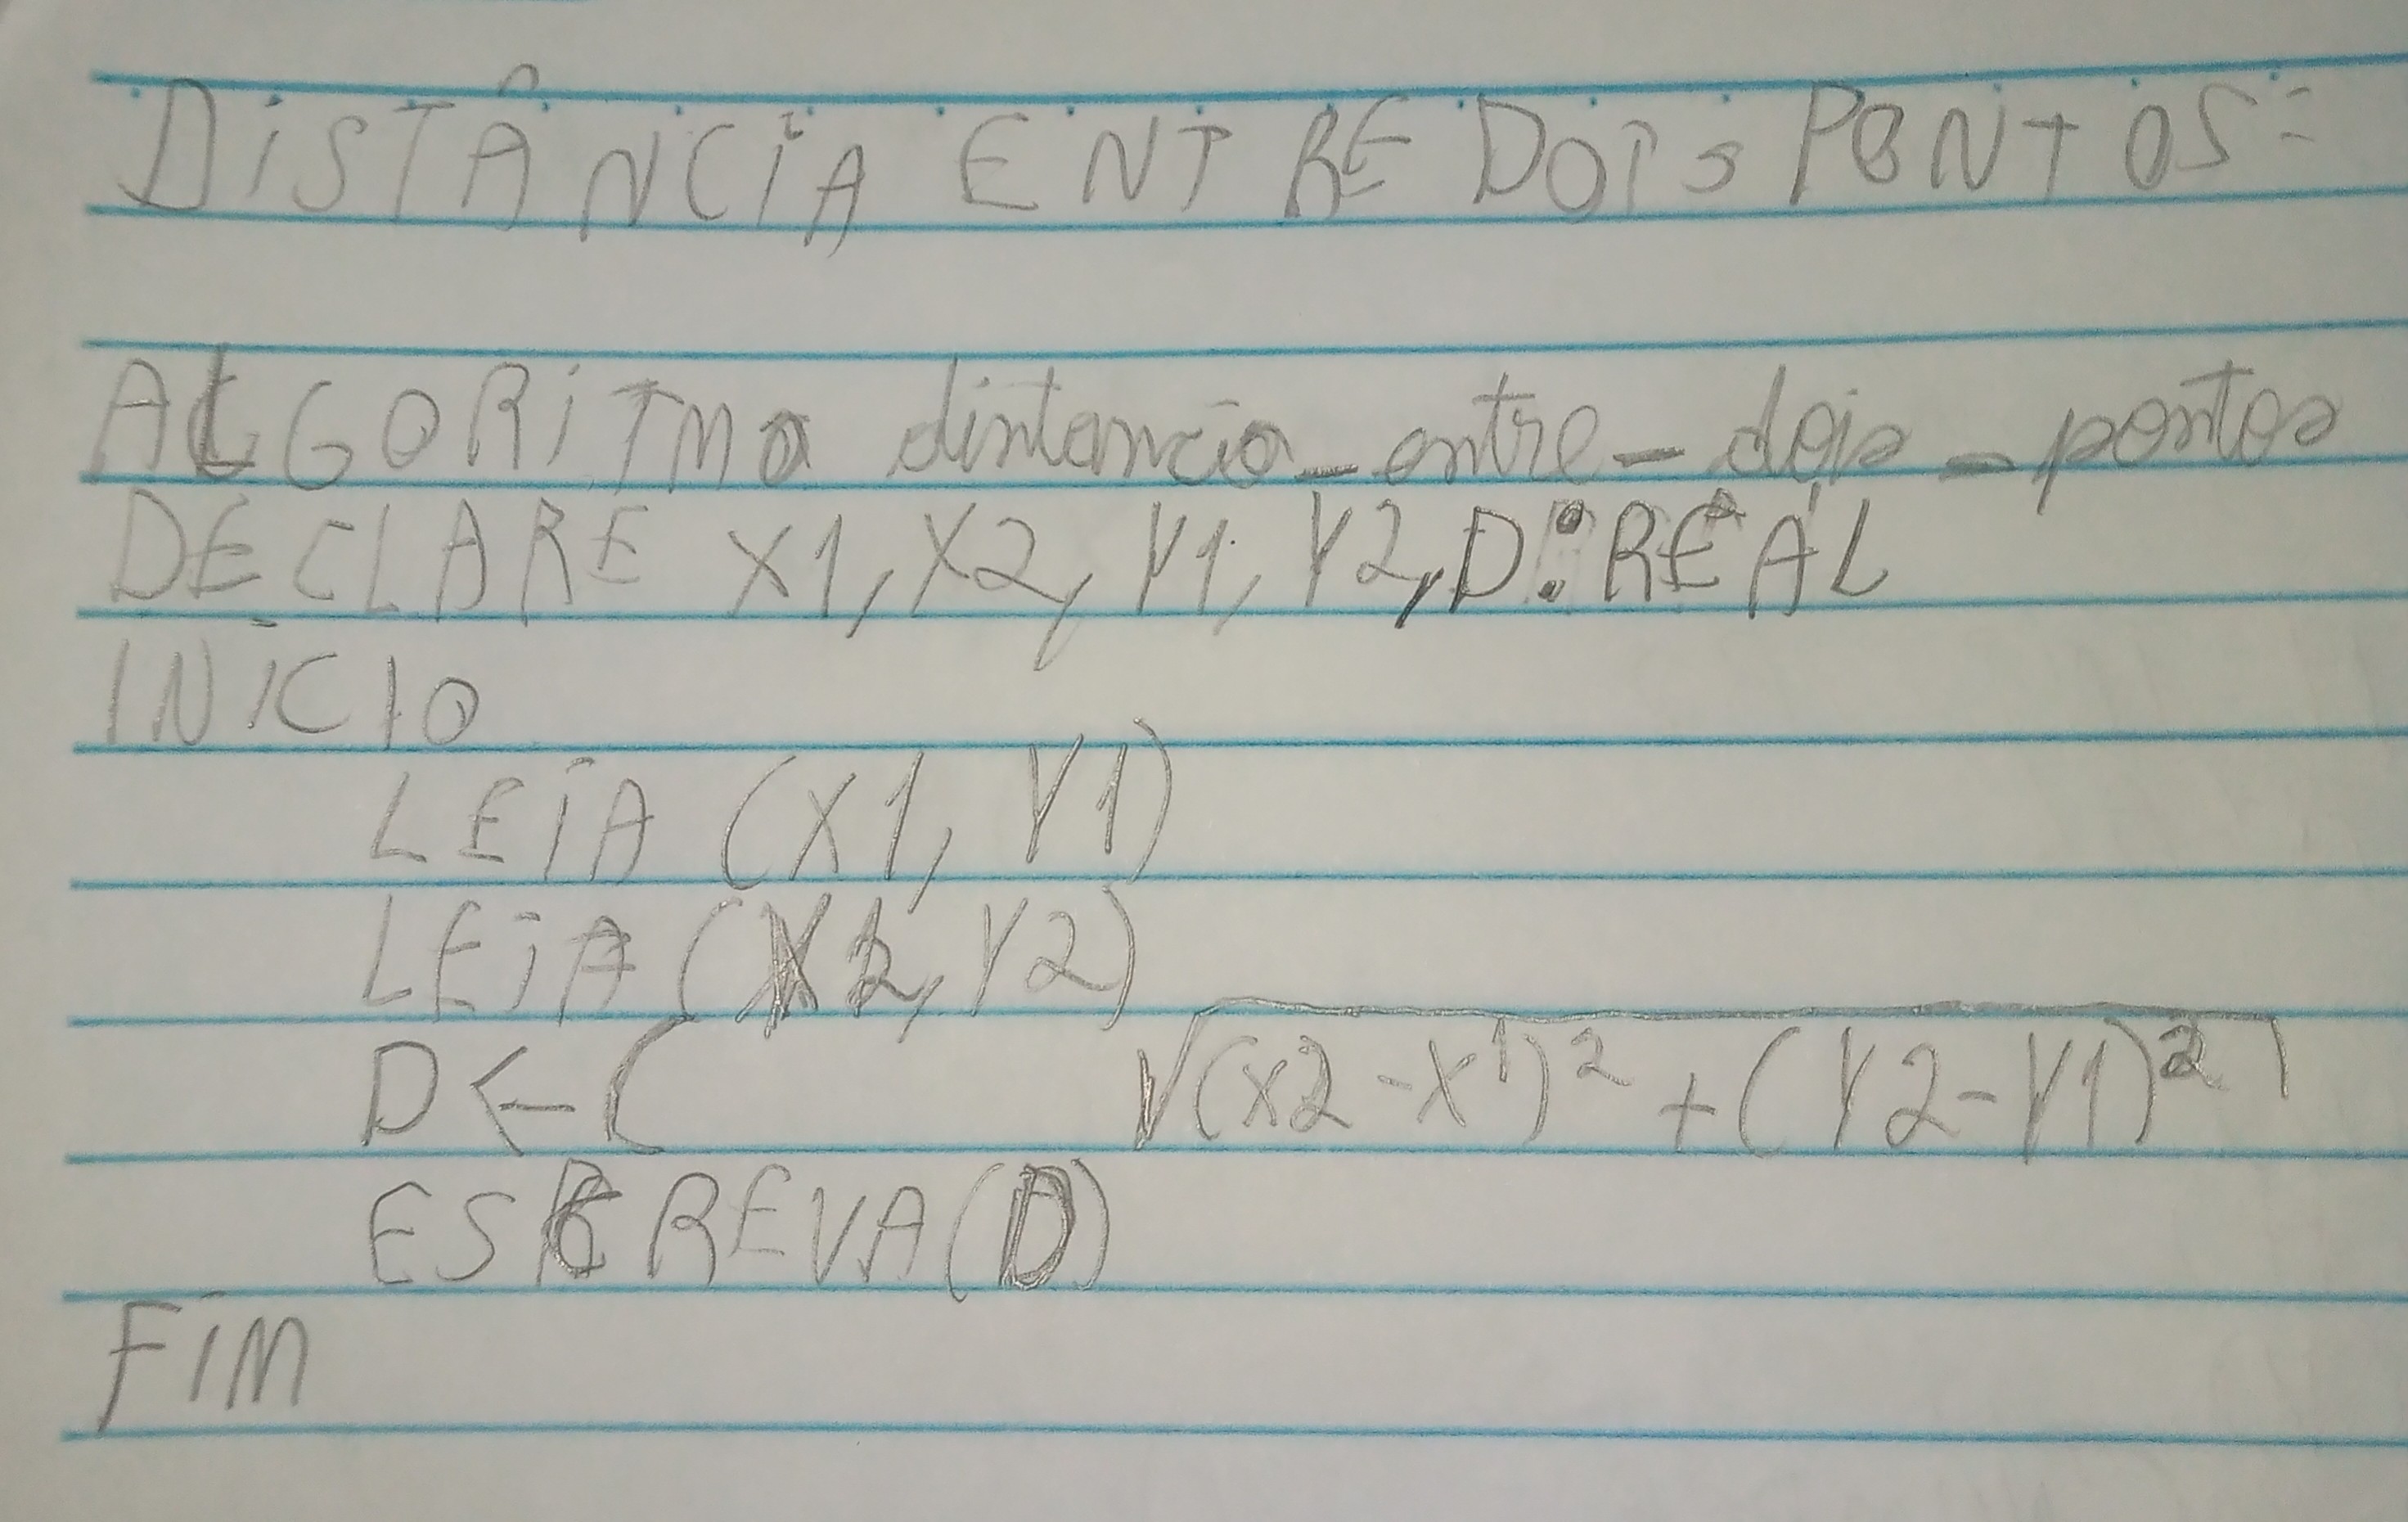 DISTÂNCIA ENTRE DOIS PONTOS:
ALGORITMO distancia_entre_dois_pontos
DECLARE X1, X2, Y1, Y2, D: REAL
INICIO
LEIA (X1, Y1)
LEIA (X2, Y2)
D ← ( √(X2-X1)² + (Y2-Y1)²
ESCREVA (D)
FIM